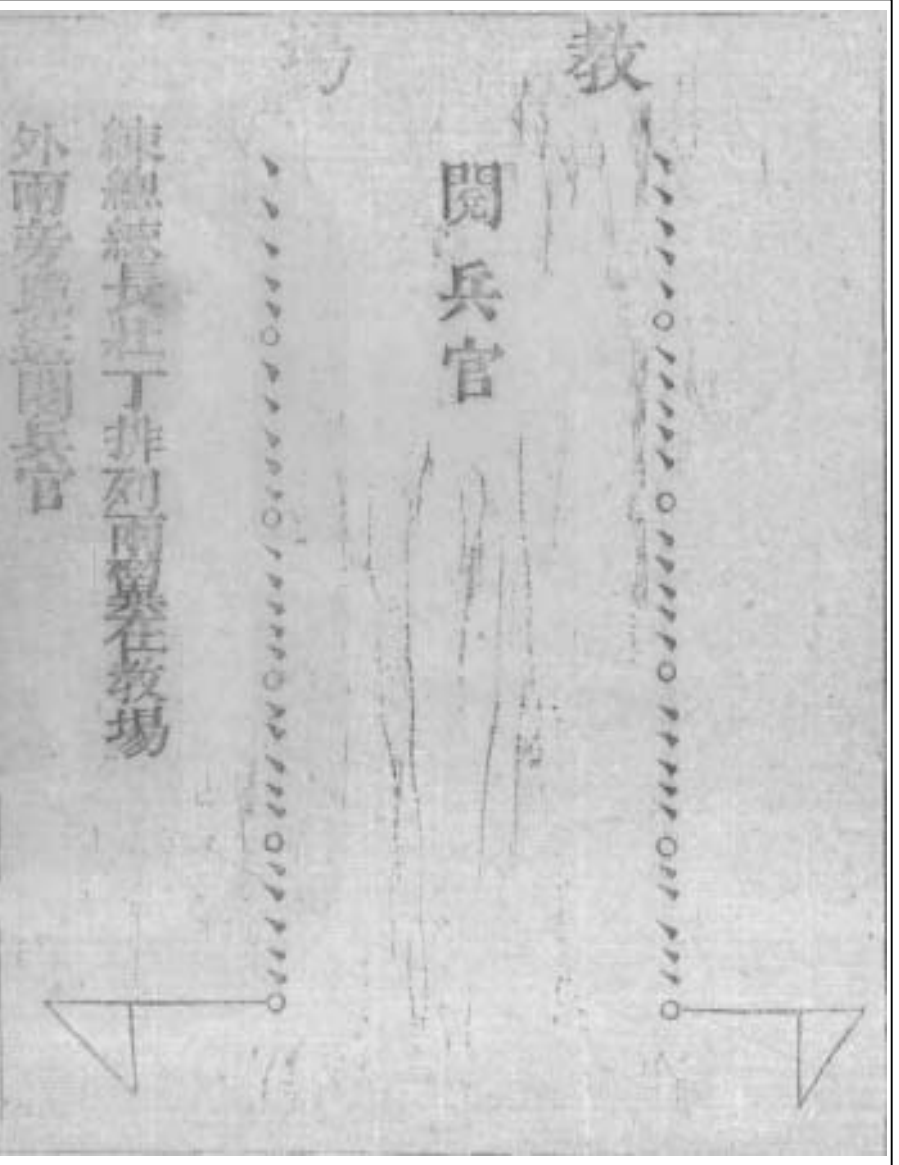 教場
閱兵官
練總練長壯丁排列兩翼在教場
外兩旁跪迎閱兵官